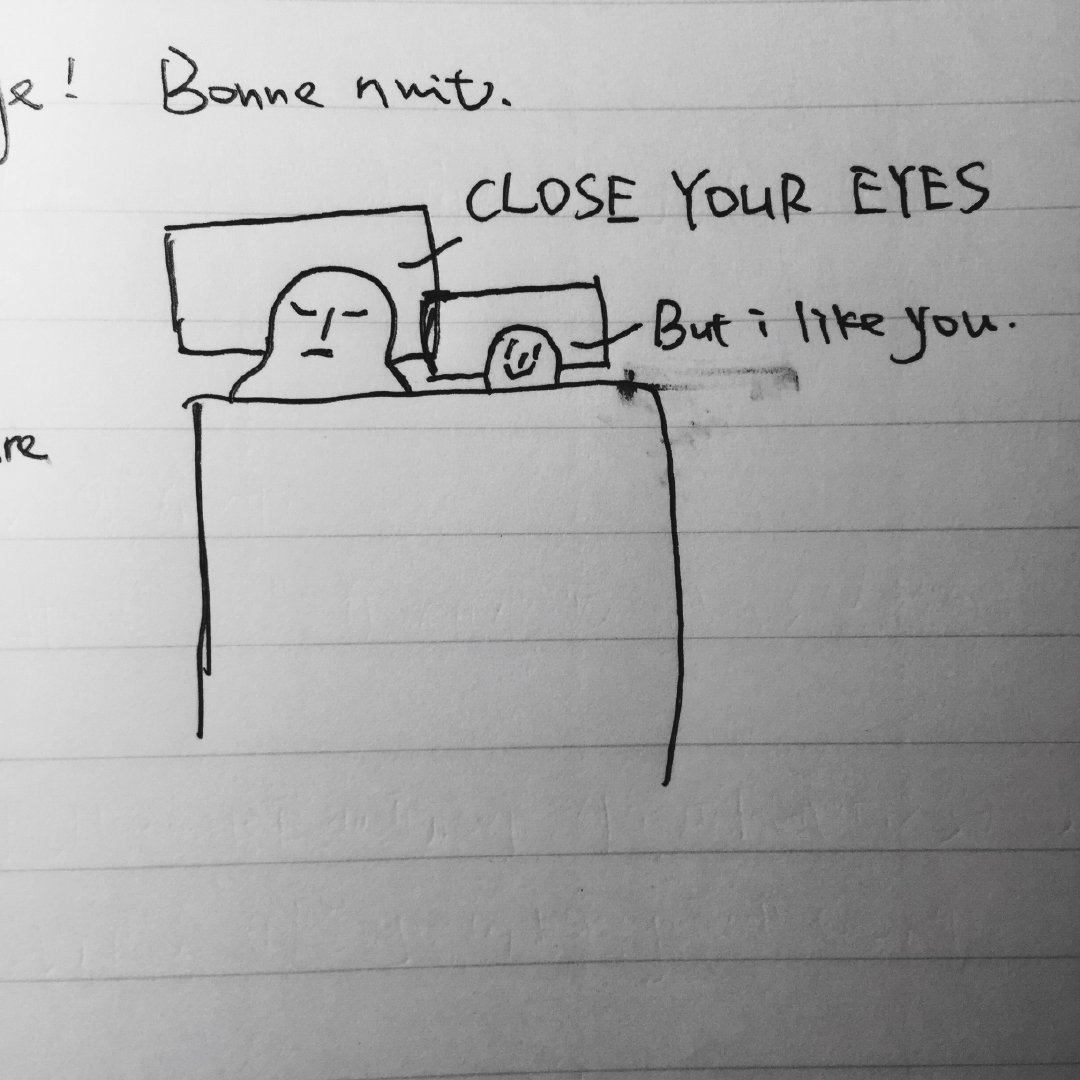 ! Bonne nuit.
CLOSE YOUR EYES
But i like you.
re